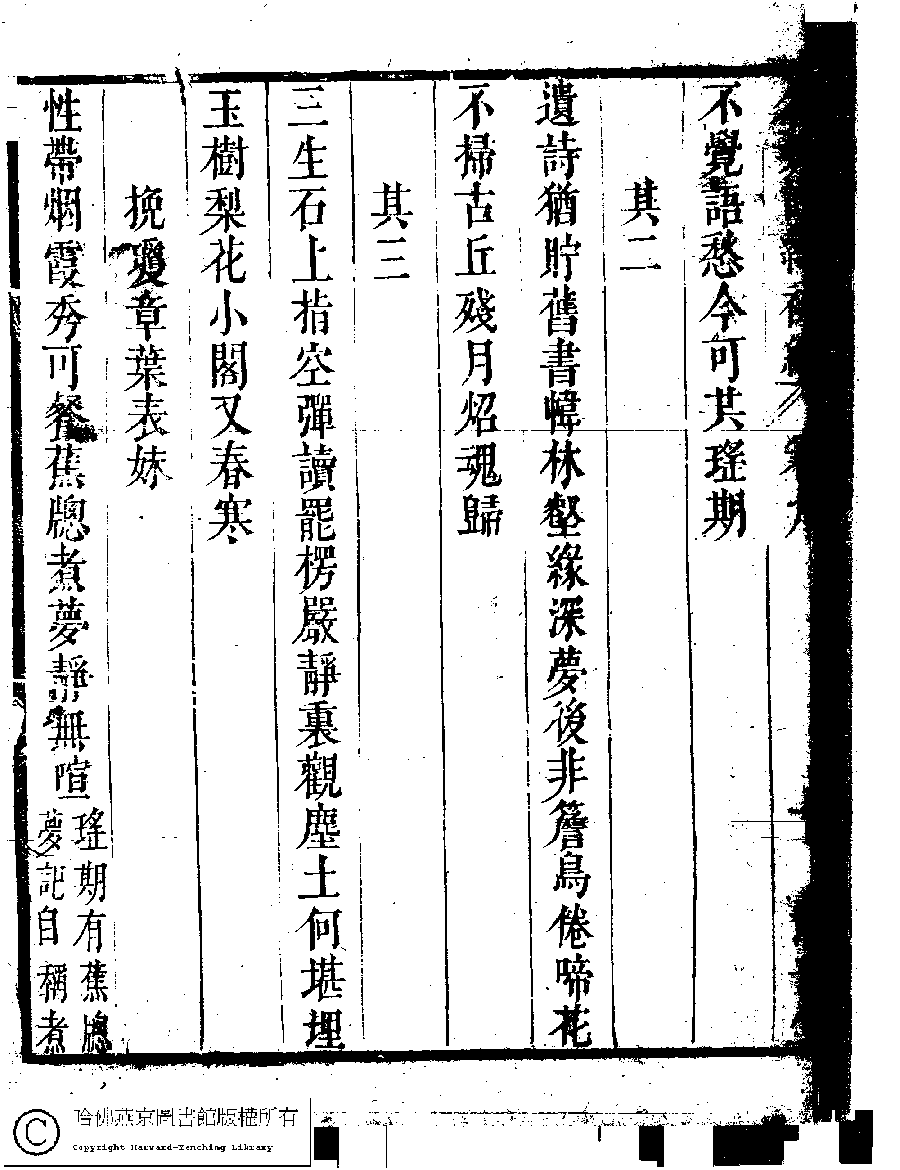 不覺語愁今可共瑤期
其二
遺詩猶貯舊書幃林壑緣深夢後非簷鳥倦啼花
不掃古丘殘月炤魂歸
其三
三生石上指空彈讀罷楞嚴靜裏觀塵土何堪埋
玉樹梨花小閣又春寒
挽瓊章葉表妹
性帶烟霞秀可餐蕉牕煮夢靜無喧
瑤期有蕉牕
夢記自稱煮
哈佛燕京圖書館版權所有
Copyright Harvard-Yenching Library